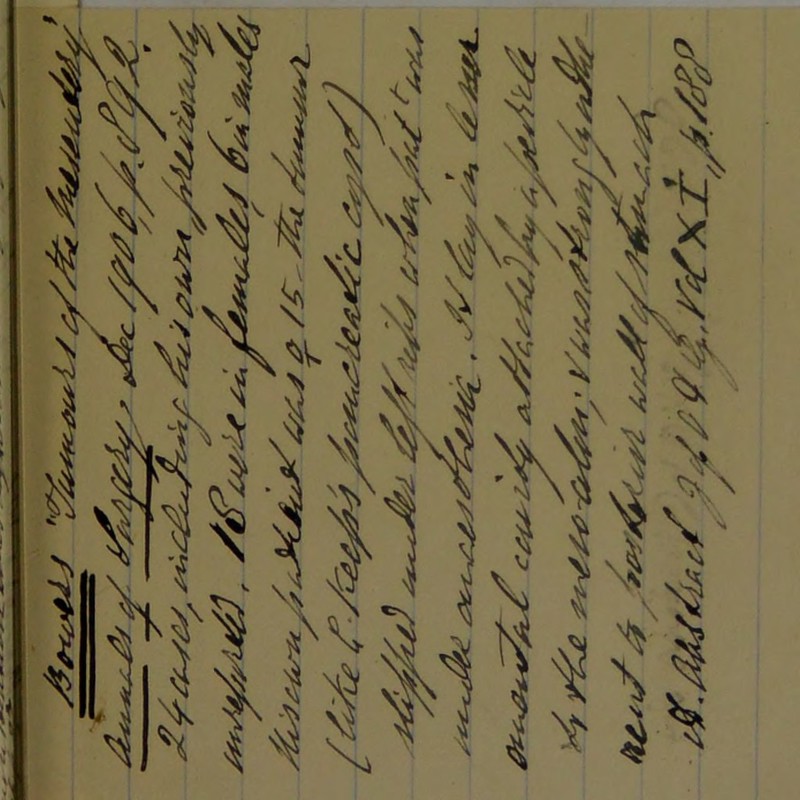 Bowers "Tumours of the Mesentery"
Annals of Surgery, Dec 1906, p. 892.
24 cases, including his own previously
unreported. 18 were in females, 6 in males
His own patient was ♀ 15 - the tumour
(like C. Keep's pancreatic cyst)
slipped under left ribs when pat was
under anaesthesia. It lay in lesser
omental cavity attached by a pedicle
to the mesocolon, & was strongly adhe-
rent to posterior wall of stomach
Abstract J of O & G, Vol XI, p. 188